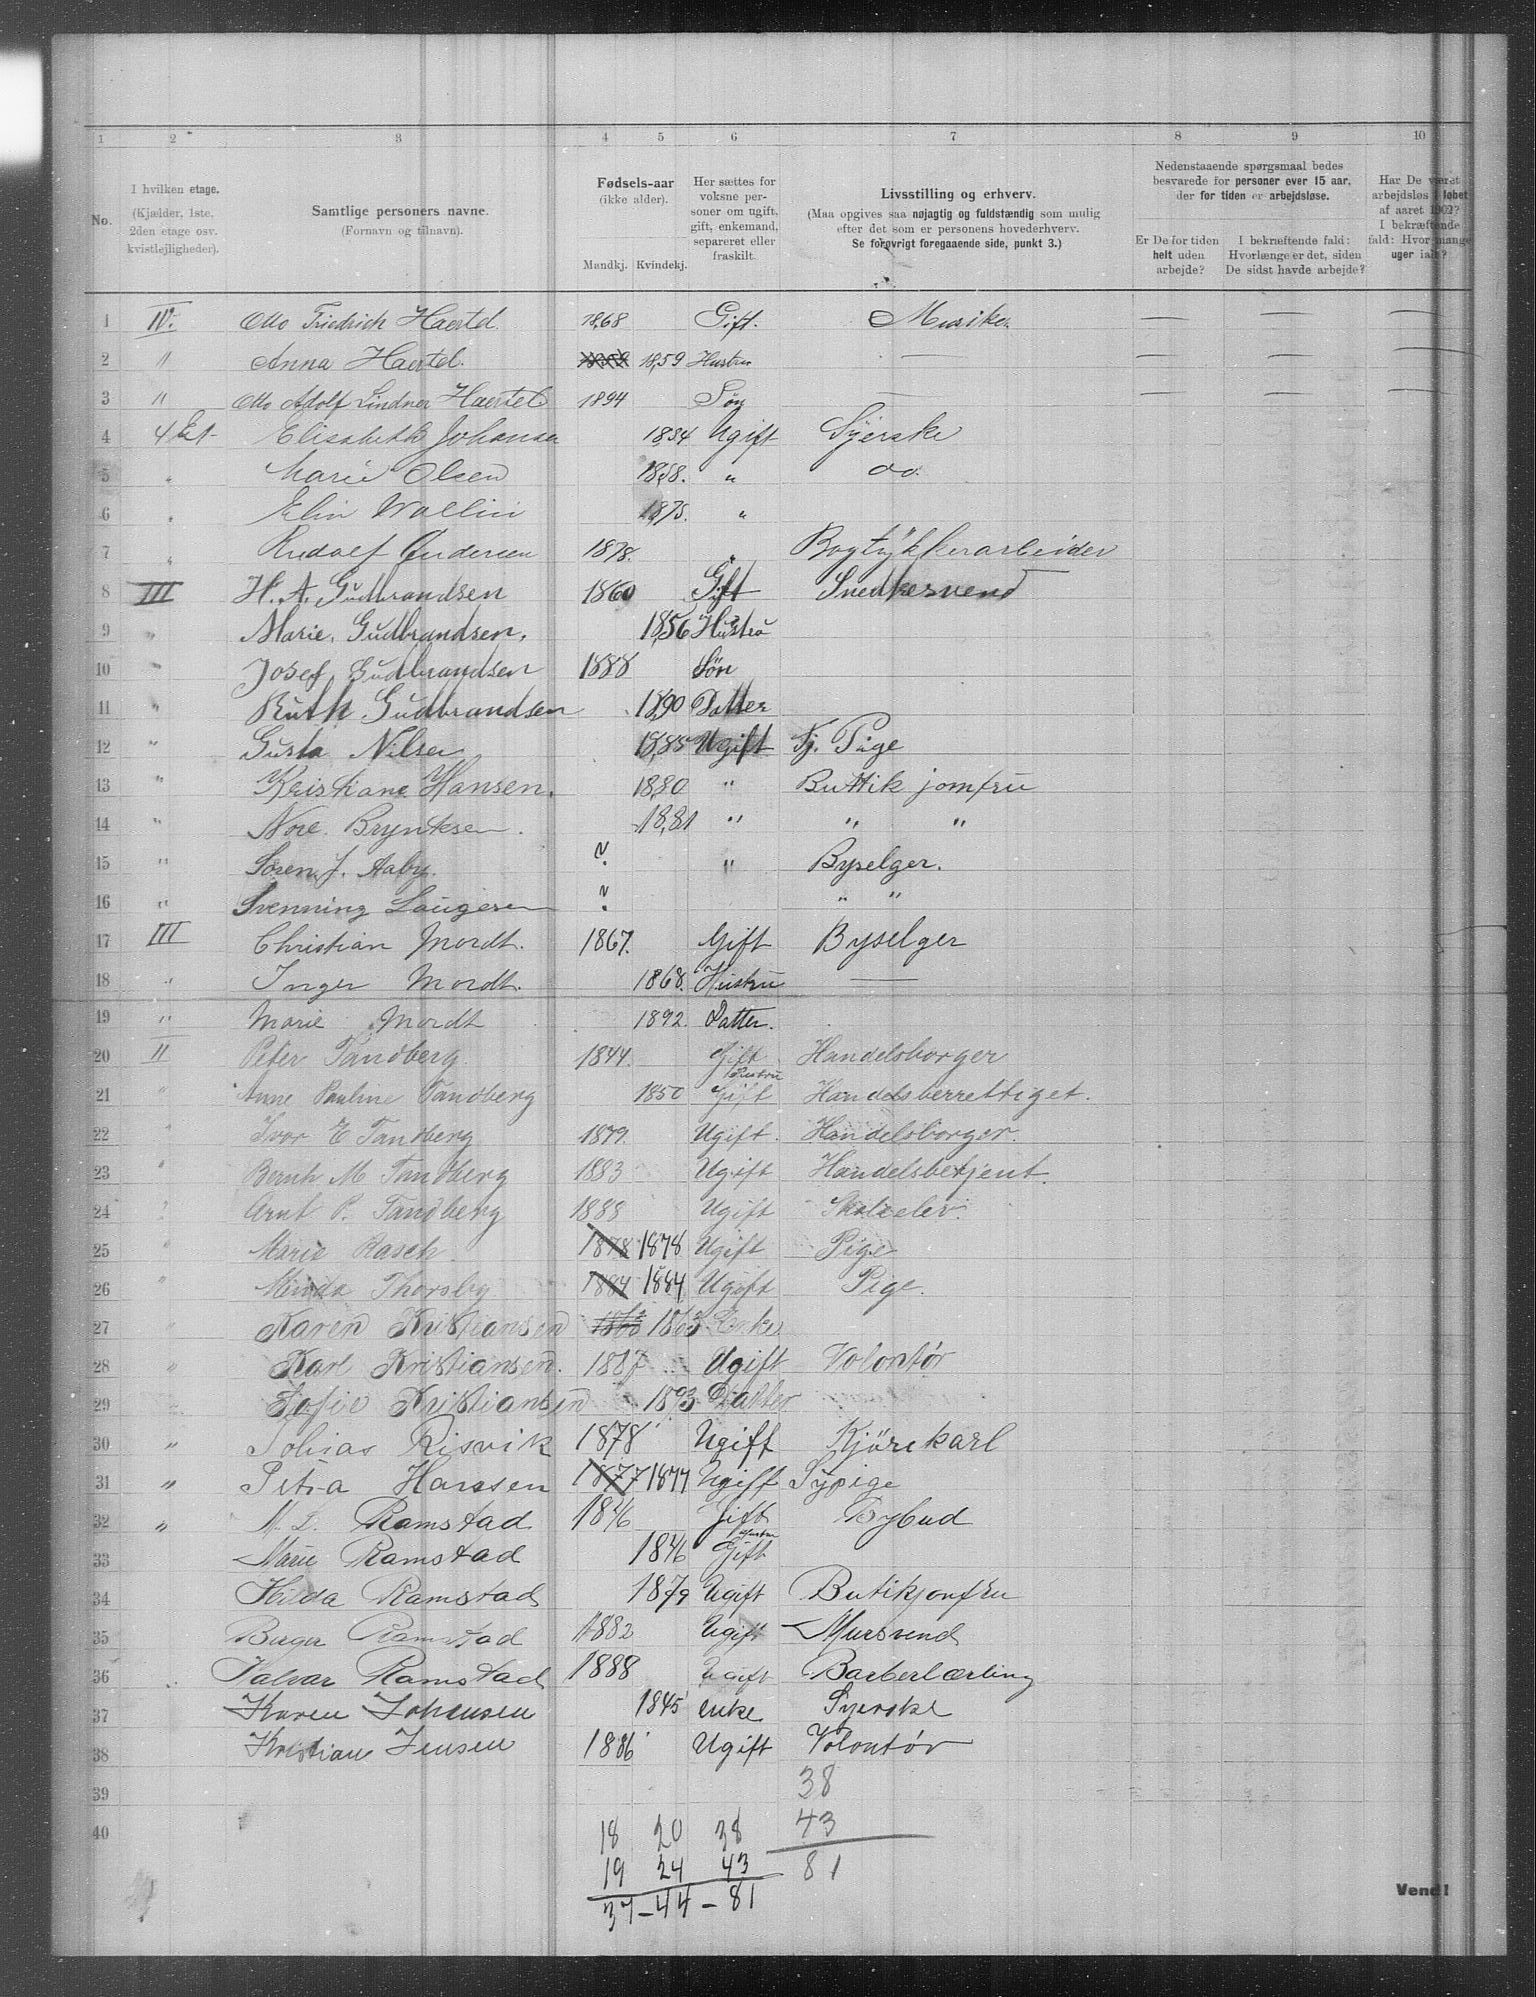 1 2 3 4 5 6 7 8 9 10
No.
I hvilken etage.
(Kjælder, 1ste, 2den etage osv. kvistlejligheder).
Samtlige personers navne.
(Fornavn og tilnavn).
Fødsels-aar
(ikke alder).
Mandkj. Kvindekj.
Her sættes for voksne personer om ugift, gift, enkemand, separeret eller fraskilt.
Livsstilling og erhverv.
(Maa opgives saa nøjagtig og fuldstændig som mulig efter det som er personens hovederhverv.
Se forøvrigt foregaaende side, punkt 3.)
Nedenstaaende spørgsmaal bedes besvarede for personer over 15 aar, der for tiden er arbejdsløse.
Er De for tiden helt uden arbejde?
I bekræftende fald: Hvorlænge er det, siden De sidst havde arbejde?
Har De været arbejdsløs i løbet af aaret 1902? I bekræftende fald: Hvor mange uger ialt?
1 IV. Otto Friedrich Haertel. 1868 Gift. Musiker — — —
2 " Anna Haertel. 1859 Hustru — — — —
3 " Otto Adolf Lindner Haertel 1894 Søn — — — —
4 4 Et. Elisabeth Johansen 1834 Ugift Syerske
5 " Marie Olsen 1858. " do.
6 " Elin Wallin 1875. "
7 " Rudolf Andersen 1878. " Bogtrykkerarbeider
8 III H. A. Gudbrandsen 1860 Gift Snedkersvend
9 " Marie Gudbrandsen. 1856 Hustru
10 " Josef Gudbrandsen 1888 Søn
11 " Ruth Gudbrandsen 1890 Datter
12 " Gusta Nilsen 1885 Ugift Tj. Pige
13 " Kristiane Hansen. 1880 " Buttik jomfru
14 " Nore Bryntesen. 1881 " " "
15 " Søren J. Aaby. ? " Byselger.
16 " Svenning Laugesen ? " "
17 III Christian Mordt. 1867. Gift Byselger
18 " Inger Mordt. 1868. Hustru —
19 " Marie Mordt 1892. Datter.
20 II Peter Tandberg. 1844. Gift Handelsborger
21 " Anne Pauline Tandberg 1850 Hustru Gift Handelsberrettiget.
22 " Ivar E Tandberg 1879. Ugift. Handelsborger.
23 " Bernh M Tandberg 1883 Ugift Handelsbetjent.
24 " Arnt P. Tandberg 1888 Ugift Skoleelev.
25 " Marie Rasch. 1878 1878 Ugift Pige
26 " Minda Thorsby 1884 1884 Ugift Pige.
27 " Karen Kristiansen 1863 Enke
28 " Karl Kristiansen. 1887 Ugift Volontør
29 " Sofie Kristiansen 1893 Datter
30 " Tobias Risvik 1878 Ugift Kjörekarl
31 " Petra Hanssen 1877 1877 Ugift Sypige
32 " M. L. Ramstad 1846 Gift Bybud
33 Marie Ramstad 1846 Hustru Gift
34 Hilda Ramstad 1879 Ugift Butikjonfru
35 Birger Ramstad 1882 Ugift Mursvend
36 Halvar Ramstad 1888 Ugift Barberlærling
37 Karen Johansen 1845 enke Syerske
38 Kristian Jensen 1886 Ugift Volontør
39 38
40 18 20 38 43
19 24 43 81
37 – 44 – 81
Vend!